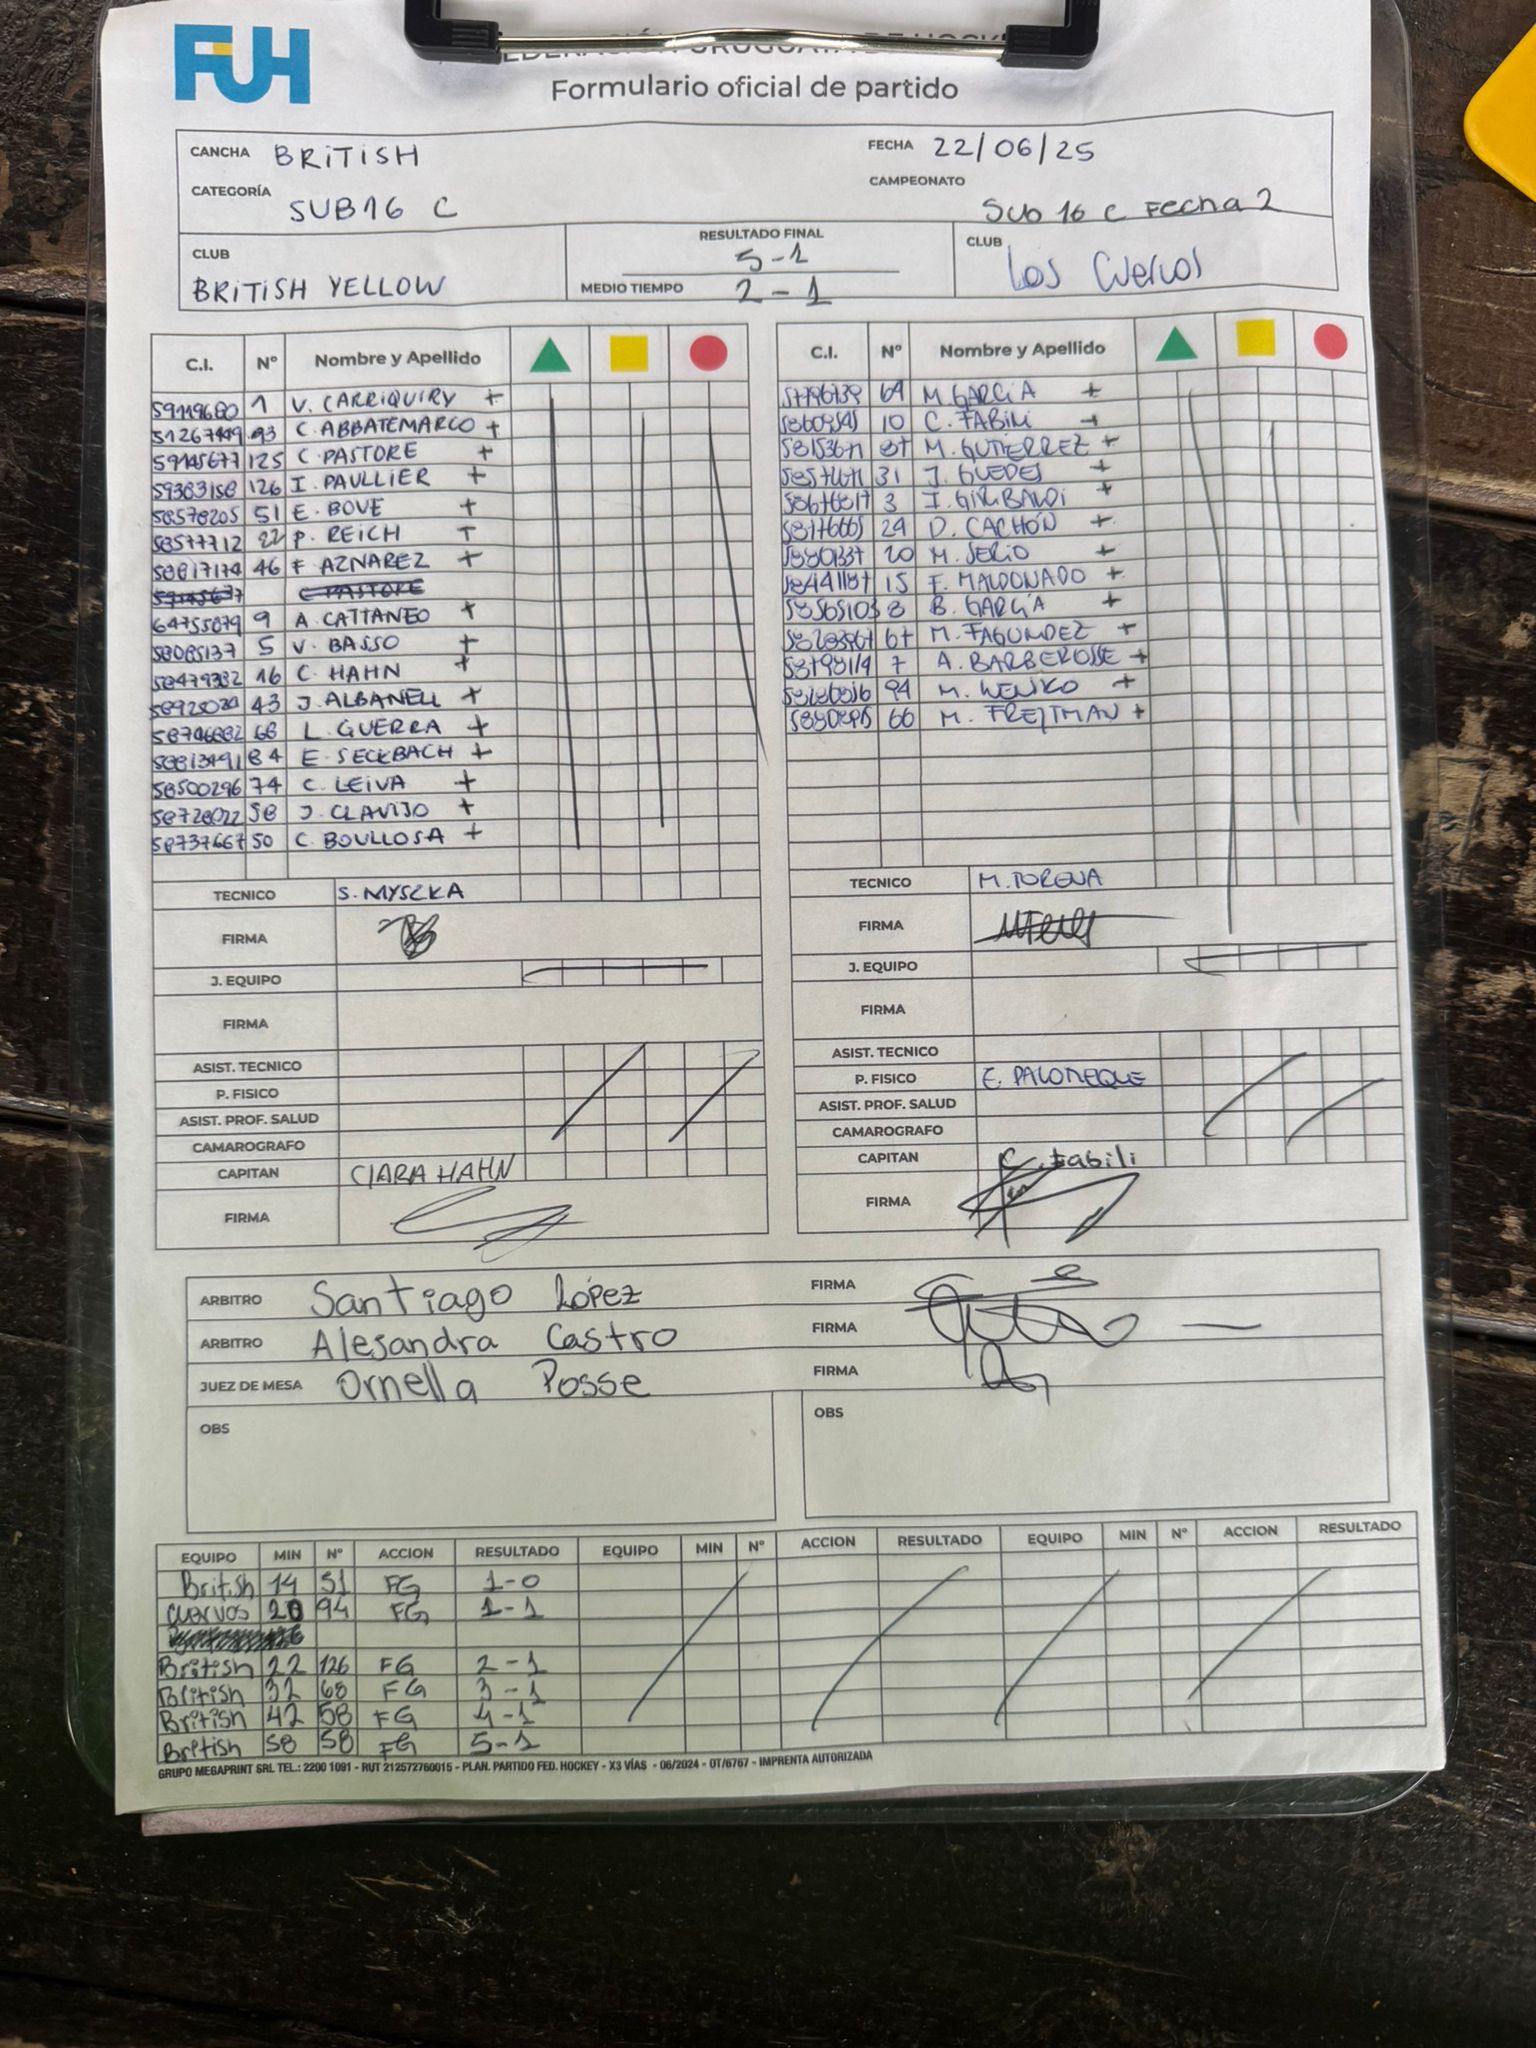 FUH
Formulario oficial de partido
CANCHA BRITISH
FECHA 22/06/25
CATEGORÍA SUB16 C
CAMPEONATO Sub 16 C Fecha 2
CLUB BRITISH YELLOW
RESULTADO FINAL 5-1
MEDIO TIEMPO 2-1
CLUB Los Cuervos
C.I. Nº Nombre y Apellido
59119680 1 V. CARRIQUIRY +
51267449 93 C. ABBATEMARCO +
59145677 125 C. PASTORE +
59383158 126 I. PAULLIER +
58578205 51 E. BOVE +
58577712 22 P. REICH +
58817174 46 F. AZNAREZ +
C PASTORE
64755879 9 A. CATTANEO +
58085137 5 V. BASSO +
58479382 16 C. HAHN +
43 J. ALBANELL +
58746882 68 L. GUERRA +
58813491 84 E. SECKBACH +
58500296 74 C. LEIVA +
58728022 58 J. CLAVIJO +
58737667 50 C. BOULLOSA +
TECNICO S. MYSZKA
FIRMA
J. EQUIPO
FIRMA
ASIST. TECNICO
P. FISICO
ASIST. PROF. SALUD
CAMAROGRAFO
CAPITAN CIARA HAHN
FIRMA
C.I. Nº Nombre y Apellido
64 M. GARCÍA +
10 C. FABILI +
87 M. GUTIÉRREZ +
31 J. GUEDES +
3 I. GIRIBALDI +
24 D. CACHÓN +
20 M. SERIO +
15 F. MALDONADO +
8 B. GARCÍA +
67 M. FAGUNDEZ +
7 A. BARBEROSSE +
94 M. WENKO +
66 M. FREJTMAN +
TECNICO M. TORENA
FIRMA
J. EQUIPO
FIRMA
ASIST. TECNICO
P. FISICO E. PALOMEQUE
ASIST. PROF. SALUD
CAMAROGRAFO
CAPITAN C. Fabili
FIRMA
ARBITRO Santiago López FIRMA
ARBITRO Alesandra Castro FIRMA
JUEZ DE MESA Ornella Posse FIRMA
OBS
OBS
EQUIPO MIN Nº ACCION RESULTADO EQUIPO MIN Nº ACCION RESULTADO EQUIPO MIN Nº ACCION RESULTADO
British 14 51 FG 1-0
Cuervos 20 94 FG 1-1
British 22 126 FG 2-1
British 32 68 FG 3-1
British 42 58 FG 4-1
British 58 58 FG 5-1
GRUPO MEGAPRINT SRL TEL.: 2200 1091 - RUT 212572760015 - PLAN. PARTIDO FED. HOCKEY - X3 VÍAS - 06/2024 - OT/6767 - IMPRENTA AUTORIZADA